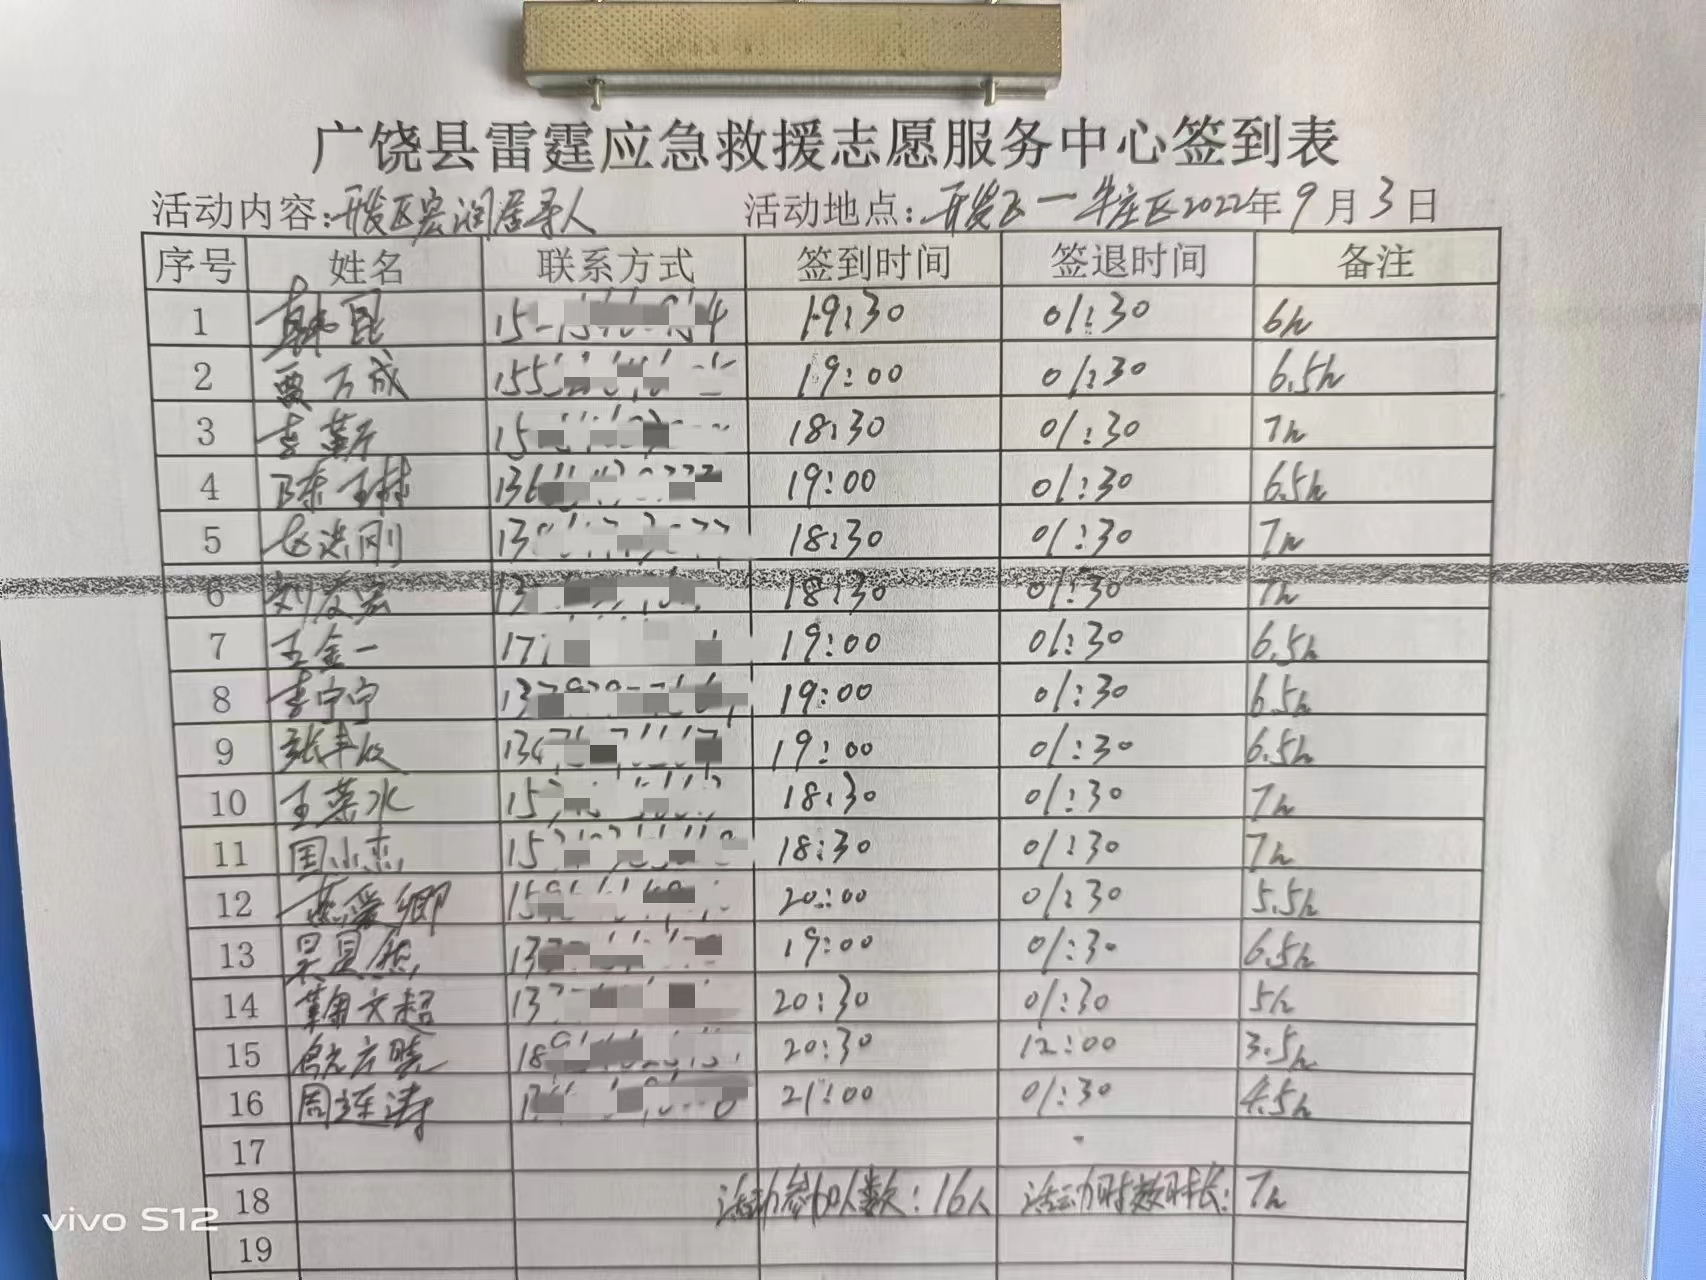 广饶县雷霆应急救援志愿服务中心签到表
活动内容:开发区宏润居寻人 活动地点:开发区一牛庄区2022年9月3日
序号 姓名 联系方式 签到时间 签退时间 备注
1 韩昆 15 19:30 01:30 6h
2 贾万成 155 19:00 01:30 6.5h
3 李 15 18:30 01:30 7h
4 陈玉林 136 19:00 01:30 6.5h
5 洪刚 13 18:30 01:30 7h
6 刘友宏 13 18:30 01:30 7h
7 王金一 17 19:00 01:30 6.5h
8 李宁宁 137 19:00 01:30 6.5h
9 张丰收 134 19:00 01:30 6.5h
10 王荣水 15 18:30 01:30 7h
11 周小杰 15 18:30 01:30 7h
12 燕爱卿 159 20:00 01:30 5.5h
13 13 19:00 01:30 6.5h
14 韩文超 13 20:30 01:30 5h
15 18 20:30 12:00 3.5h
16 周连涛 1 21:00 01:30 4.5h
17
18 活动参加人数:16人 活动时效时长: 7h
19
vivo S12